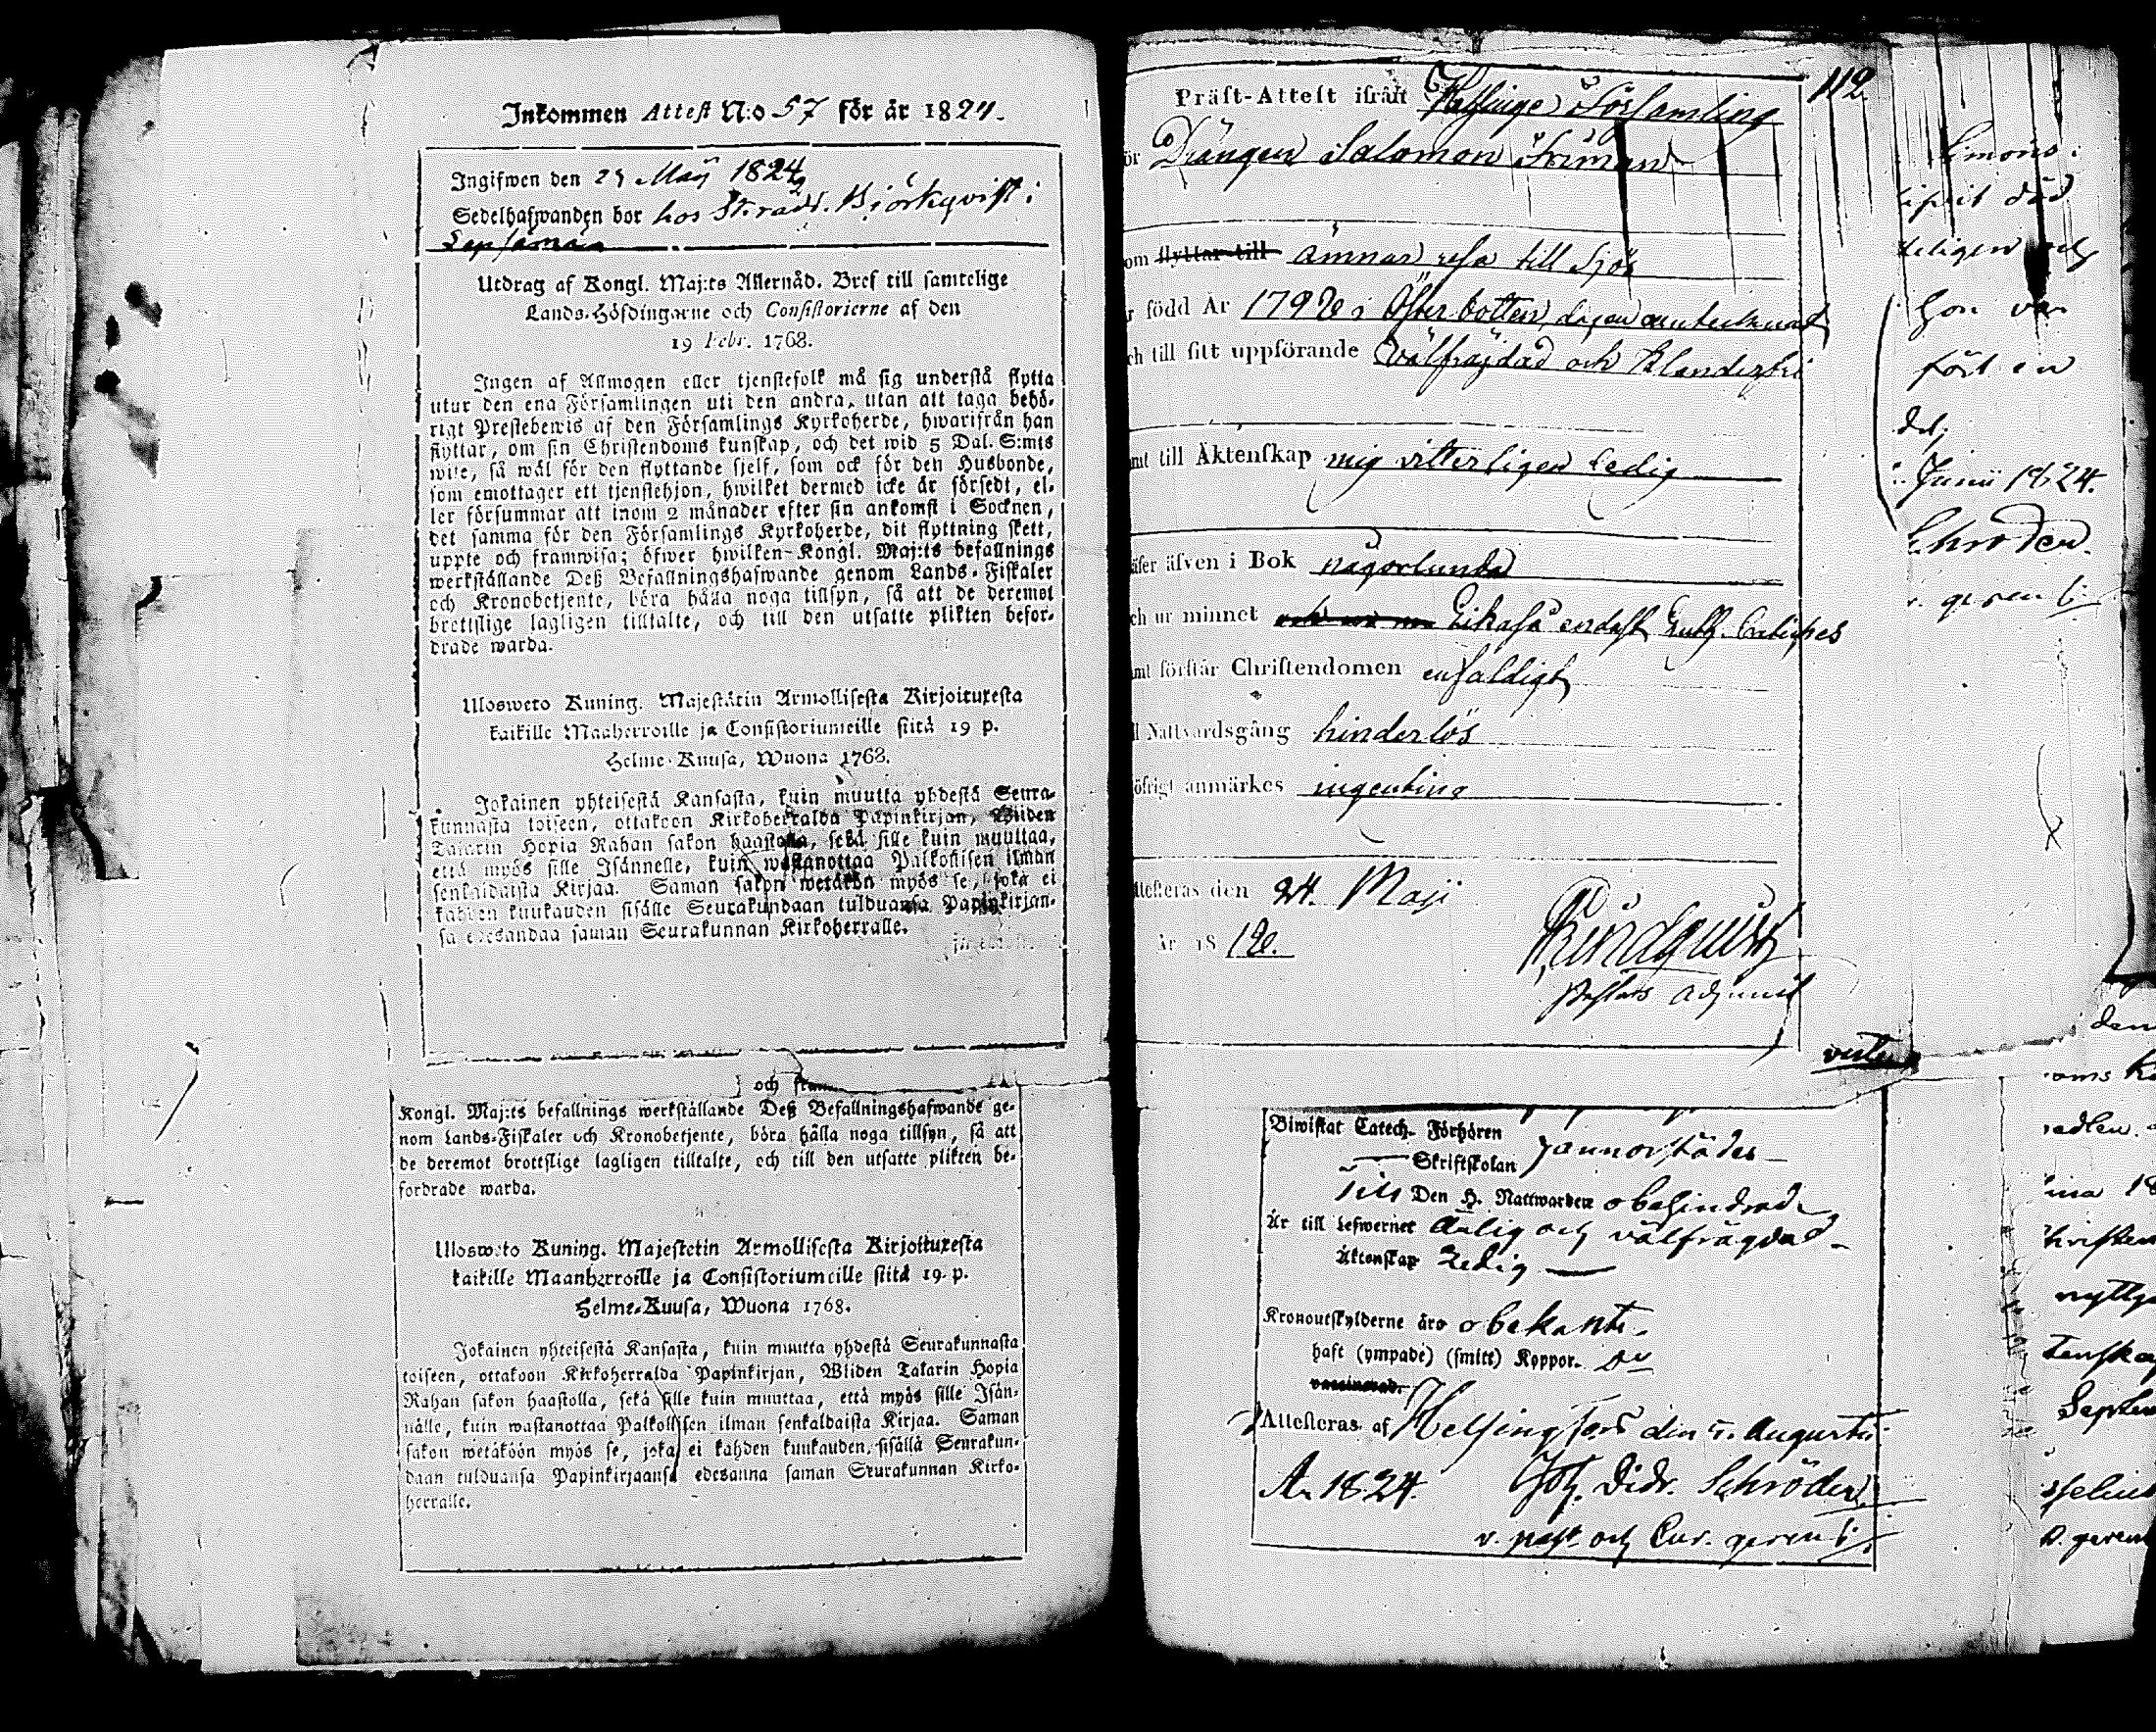 Inkommen Attest N:o 57 för år 1824.
Ingifwen den 29 Maÿ 1824
Sedelhafwanden bor hos St:rådt. Björkqvist i
Utdrag af Kongl. Maj:ts Allernåd. Bref till samtelige
Lands-Höfdingarne och Consistorierne af den
19 Febr. 1768.
Ingen af Allmogen eller tjenstefolk må sig understå flytta
utur den ena Församlingen uti den andra, utan att taga behö-
rigt Prestebewis af den Församlings Kyrkoherde, hwarifrån han
flyttar, om sin Christendoms kunskap, och det wid 5 Dal. S:mts
wite, så wäl för den flyttande sjelf, som ock för den Husbonde,
som emottager ett tjenstehjon, hwilket dermed icke är försedt, el-
ler försummar att inom 2 månader efter sin ankomst i Socknen,
det samma för den Församlings Kyrkoherde, dit flyttning skett,
uppte och framwisa; öfwer hwilken Kongl. Maj:ts befallnings
werkställande Deß Befallningshafwande genom Lands-Fiskaler
och Kronobetjente, böra hålla noga tillsyn, så att de deremot
brottslige lagligen tilltalte, och till den utsatte plikten befor-
drade warda.
Ulosweto Kuning. Majestätin Armollisesta Kirjoituxesta
kaikille Maaherroille ja Consistoriumeille siitä 19 p.
Helme-Kuusa, Wuona 1768.
Jokainen yhteisestä Kansasta, kuin muutta yhdestä Seura-
kunnasta toiseen, ottakoon Kirkoherralda Papinkirjan, Wiiden
Talarin Hopia Rahan sakon haastolla, sekä sille kuin muuttaa,
että myös sille Isännelle, kuin wastanottaa Palkollisen ilman
senkaldaista Kirjaa. Saman sakon wetäkön myös se, joka ei
kahden kuukauden sisälle Seurakundaan tulduansa Papinkirjan-
sa edesandaa saman Seurakunnan Kirkoherralle.
och fram
Kongl. Maj:ts befallnings werkställande Deß Befallningshafwande ge-
nom Lands-Fiskaler och Kronobetjente, böra hålla noga tillsyn, så att
de deremot brottslige lagligen tilltalte, och till den utsatte plikten be-
fordrade warda.
Ulosweto Kuning. Majestetin Armollisesta Kirjoituxesta
kaikille Maanherroille ja Consistoriumeille siitä 19. p.
Helme-Kuusa, Wuona 1768.
Jokainen yhteisestä Kansasta, kuin muutta yhdestä Seurakunnasta
toiseen, ottakoon Kirkoherralda Papinkirjan, Wiiden Talarin Hopia
Rahan sakon haastolla, sekä sille kuin muuttaa, että myös sille Isän-
nälle, kuin wastanottaa Palkollisen ilman senkaldaista Kirjaa. Saman
sakon wetäköön myös se, joka ei kahden kuukauden sisällä Seurakun-
daan tulduansa Papinkirjaansa edesanna saman Seurakunnan Kirko-
herralle.
112
Präst-Attest ifrån Helsinge Församling
ör Drängen Salomon Friman
om flyttar till ämnar resa till Sjös
r född År 1792 i Österbotten, dagen antecknad
ch till sitt uppförande Välfrägdad och Klanderfri
mt till Äktenskap mig vitterligen Ledig
äser äfven i Bok någorlunda
ch ur minnet Likaså endast Luth. Cateches
mt förstår Christendomen enfaldigt
ll Nattvardsgång hinderlös
öfrigt anmärkes ingenting
ttesteras den 24. Maji
år 18
Lindquist
Pastors Adjunct
Biwistat Catech. Förhören
Skriftskolan annorstädes
Till Den H. Nattwarden obehindrad
Är till lefwernet ärlig och välfrägdad
Äktenskap Ledig
Kronoutskylderne äro obekante
haft (ympade) (smitt) Koppor.
vaccinerad.
Attesteras af Helsingfors den 5. Augusti
År 1824. Joh. Didr. Schröder
v. past. och Cur. gerens
Simons
april död
teligen och
hon var
fört en
del;
Junii 1824.
Schröder.
v. gerens
den
oms K
adlen
ina 18
hristen
nyttja
tenskap
Septem
v. gerens